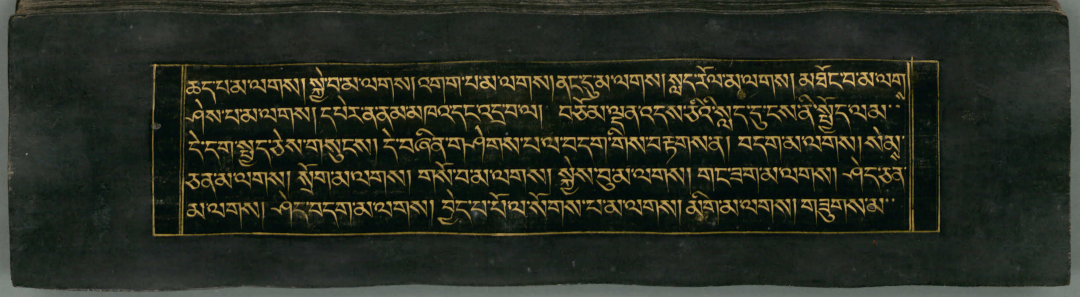 ཆད་པ་མ་ལགས། སྐྱེ་བ་མ་ལགས། འགག་པ་མ་ལགས། ནང་དུ་མ་ལགས། སླད་རོལ་མ་ལགས། མཐོང་བ་མ་ལག
ཤེས་པ་མ་ལགས། དཔེར་ན་ནམ་མཁའ་དང་འདྲ་བ་ལ། བཅོམ་ལྡན་འདས་ཅིའི་སླད་དུ་ངས་ནི་སྤྱོད་ལམ་
ངེ་དག་སྤྱད་ཅེས་གསུངས། དེ་བཞིན་གཤེགས་པ་ལ་བདག་གིས་བརྟགས་ན། བདག་མ་ལགས། སེམས་
ཅན་མ་ལགས། སྲོག་མ་ལགས། གསོ་བ་མ་ལགས། སྐྱེས་བུ་མ་ལགས། གང་ཟག་མ་ལགས། ཤེད་ཅན་
མ་ལགས། ཤེད་བདག་མ་ལགས། བྱེད་པ་པོ་ལ་སོགས་པ་མ་ལགས། མིག་མ་ལགས། གཟུགས་མ་